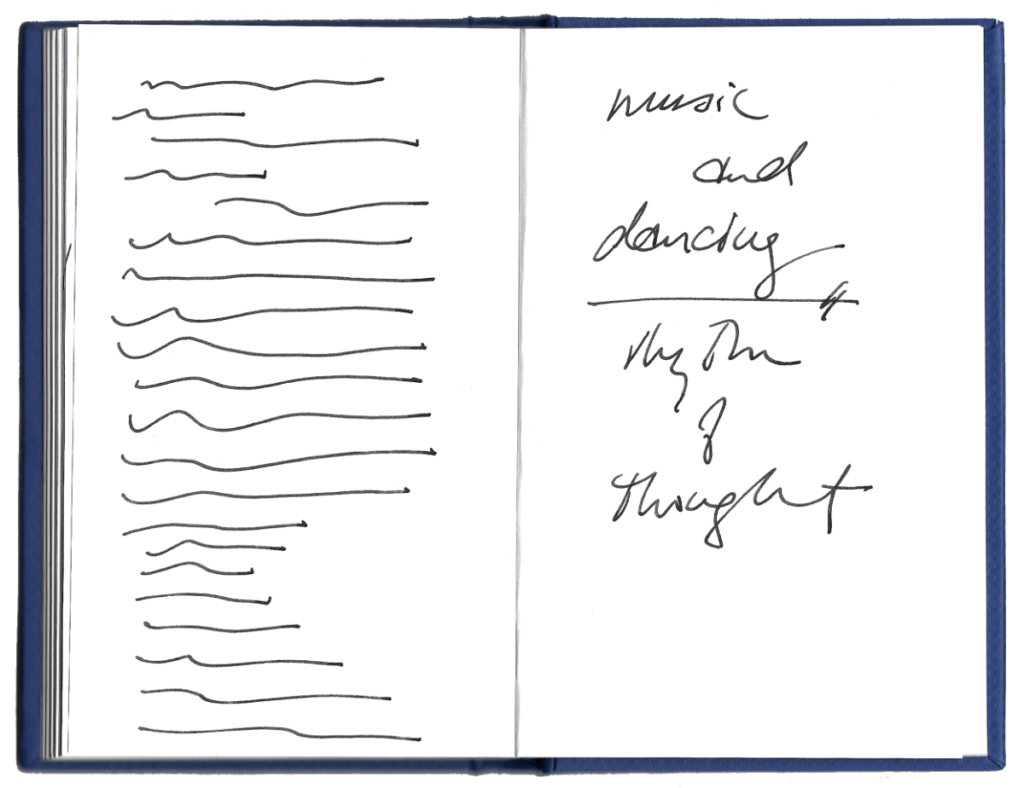 music
and
dancing
rhythm
of
thought